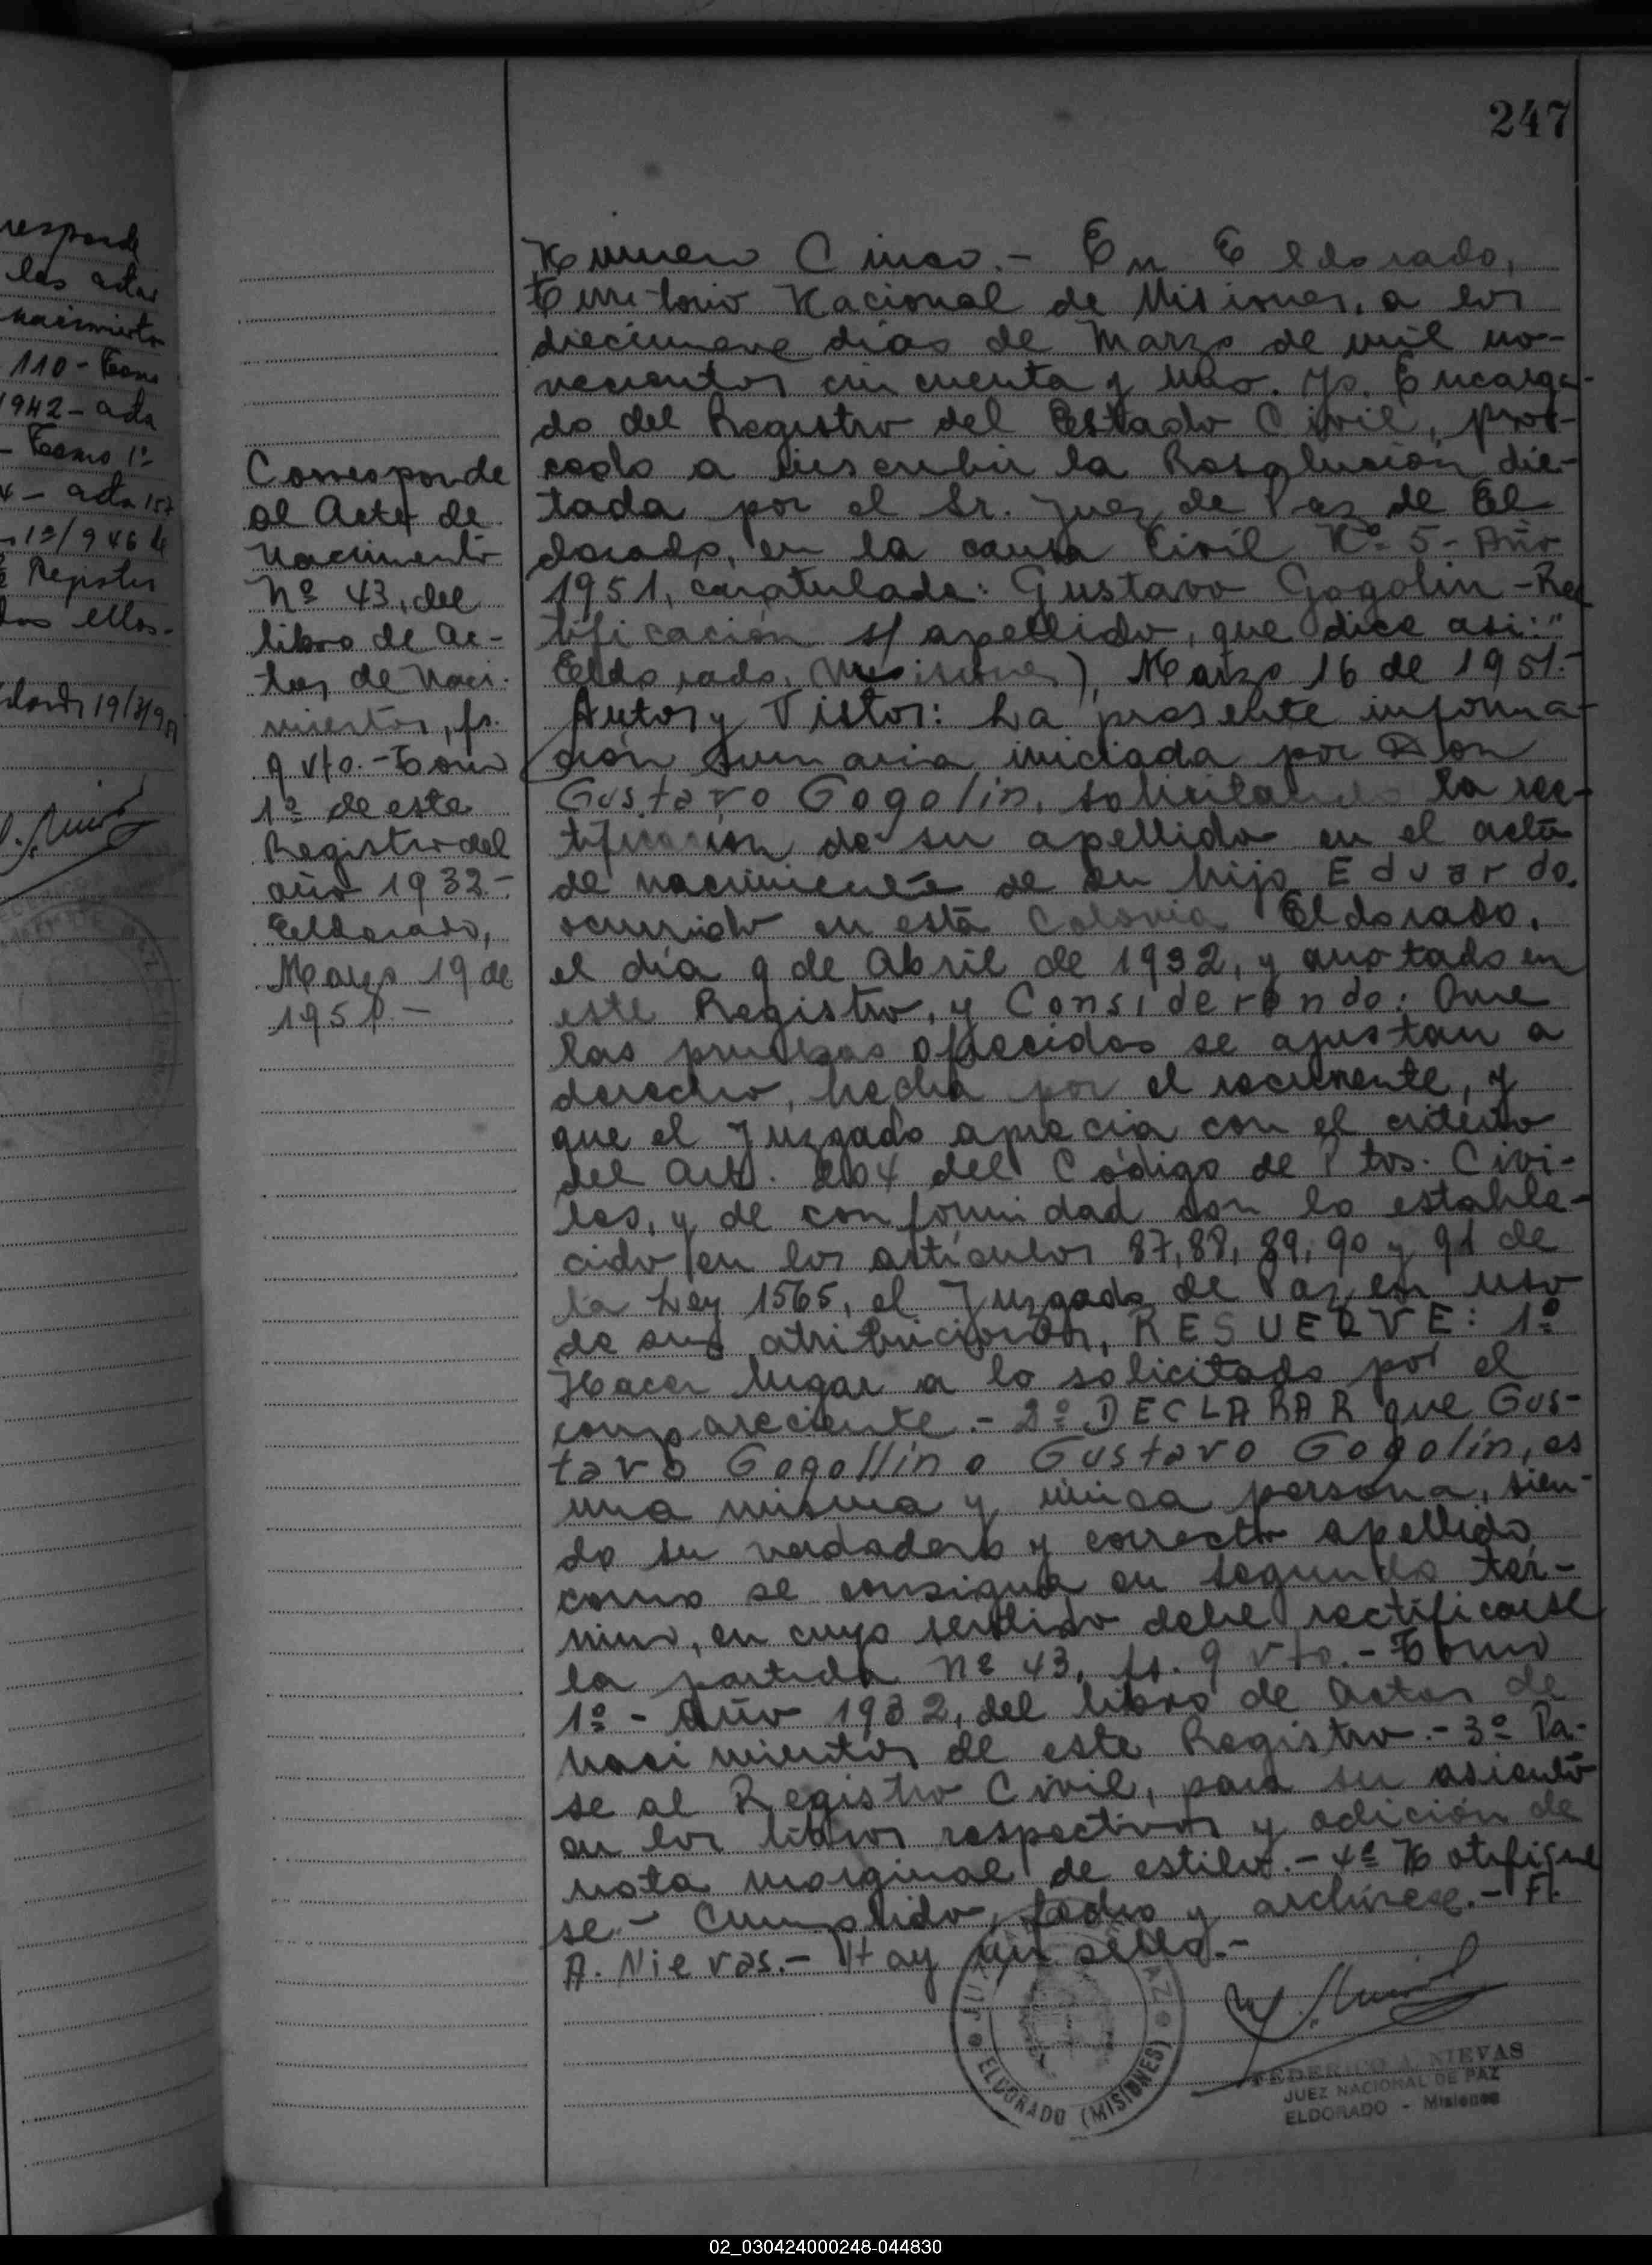 247
responde
las actas
nacimiento
110 - Tomo
1942 - acta
- Tomo 1º
4 - acta 157
1º/946 de
Registro
los ellos.-
19/3/951
Corresponde
al Acta de
Nacimiento
Nº 43, del
libro de Ac-
tas de Naci-
mientos, fs.
9 vto. - Tomo
1º de este
Registro del
año 1932.-
Eldorado,
Marzo 19 de
1951.-
Numero Cinco.- En Eldorado,
Territorio Nacional de Misiones, a los
diecinueve días de Marzo de mil no-
vecientos cincuenta y uno. Yo, Encarga-
do del Registro del Estado Civil, pro-
cedo a inscribir la Resolución dic-
tada por el Sr. Juez de Paz de El
dorado, en la causa Civil Nº 5 - Año
1951, caratulada: Gustavo Gogolin - Rec
tificación s/ apellido, que dice así: "
Eldorado, (Misiones), Marzo 16 de 1951.-
Autos y Vistos: La presente informa-
ción sumaria iniciada por Don
Gustavo Gogolin, solicitando la rec-
tificación de su apellido en el acta
de nacimiento de su hijo Eduardo,
ocurrido en esta Colonia Eldorado,
el día 9 de Abril de 1932, y anotado en
este Registro, y Considerando: Que
las pruebas ofrecidas se ajustan a
derecho, hecha por el recurrente, y
que el Juzgado aprecia con el criterio
del Art. 204 del Código de Ptos. Civi-
les, y de conformidad con lo estable-
cido en los artículos 87, 88, 89, 90 y 91 de
la Ley 1565, el Juzgado de Paz en uso
de sus atribuciones, RESUELVE: 1º
Hacer lugar a lo solicitado por el
compareciente.- 2º DECLARAR que Gus-
tavo Gogollin o Gustavo Gogolin, es
una misma y única persona, sien-
do su verdadero y correcto apellido
como se consigna en segundo tér-
mino, en cuyo sentido debe rectificarse
la partida Nº 43, fs. 9 vto. - Tomo
1º - Año 1932, del libro de Actas de
nacimientos de este Registro.- 3º Pa-
se al Registro Civil, para su asiento
en los libros respectivos y adición de
nota marginal de estilo.- 4º Notifique
se.- Cumplido, fecho y archívese.- Fl.
A. Nievas.- Hay un sello.-
ELDORADO (MISIONES)
FEDERICO A. NIEVAS
JUEZ NACIONAL DE PAZ
ELDORADO - Misiones
02_030424000248-044830